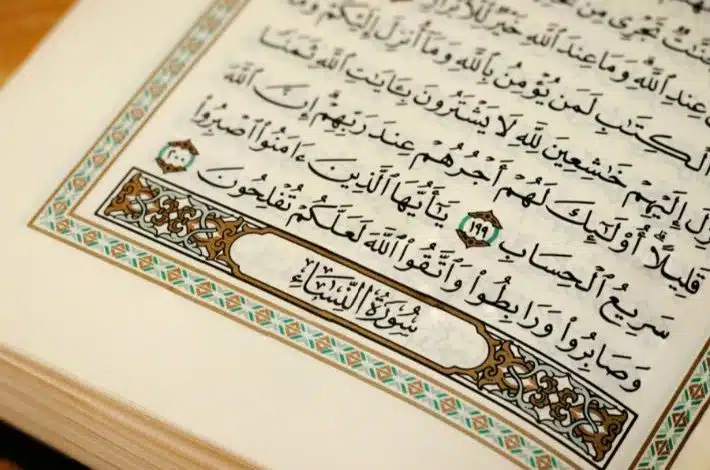 جَنَّٰتٌ تَجْرِى مِن
عِندِ ٱللَّهِ وَمَا عِندَ ٱللَّهِ خَيْرٌ لِّلْأَبْرَارِ
ٱلْكِتَٰبِ لَمَن يُؤْمِنُ بِٱللَّهِ وَمَآ أُنزِلَ إِلَيْكُمْ وَمَآ
إِلَيْهِمْ خَٰشِعِينَ لِلَّهِ لَا يَشْتَرُونَ بِـَٔايَٰتِ ٱللَّهِ ثَمَنًا
قَلِيلًا ۗ أُو۟لَٰٓئِكَ لَهُمْ أَجْرُهُمْ عِندَ رَبِّهِمْ ۗ إِنَّ ٱللَّهَ
سَرِيعُ ٱلْحِسَابِ ١٩٩ يَٰٓأَيُّهَا ٱلَّذِينَ ءَامَنُوا۟ ٱصْبِرُوا۟
وَصَابِرُوا۟ وَرَابِطُوا۟ وَٱتَّقُوا۟ ٱللَّهَ لَعَلَّكُمْ تُفْلِحُونَ ٢٠٠
سُورَةُ النِّسَاءِ